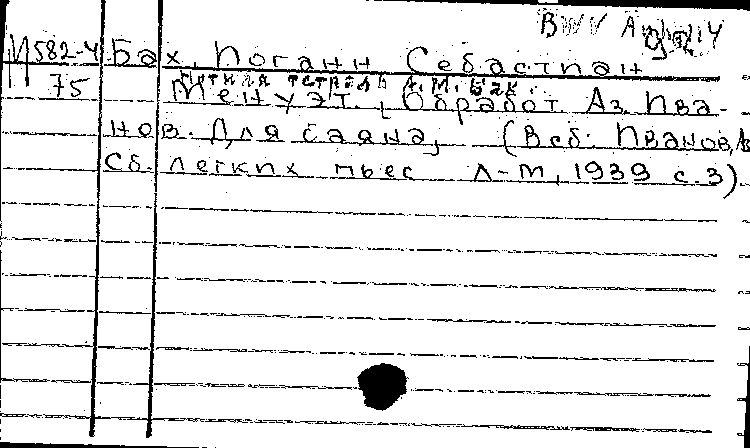 BWV Anh. 114
М 582-4 Бах, Иоганн Себастиан
75 Нотная тетрадь А. М. Бах.
Менуэт. Обработ. Аз. Ива-
нов. Для баяна, (В сб: Иванов, А
Сб. легких пьес Л-М, 1939 с. 3)